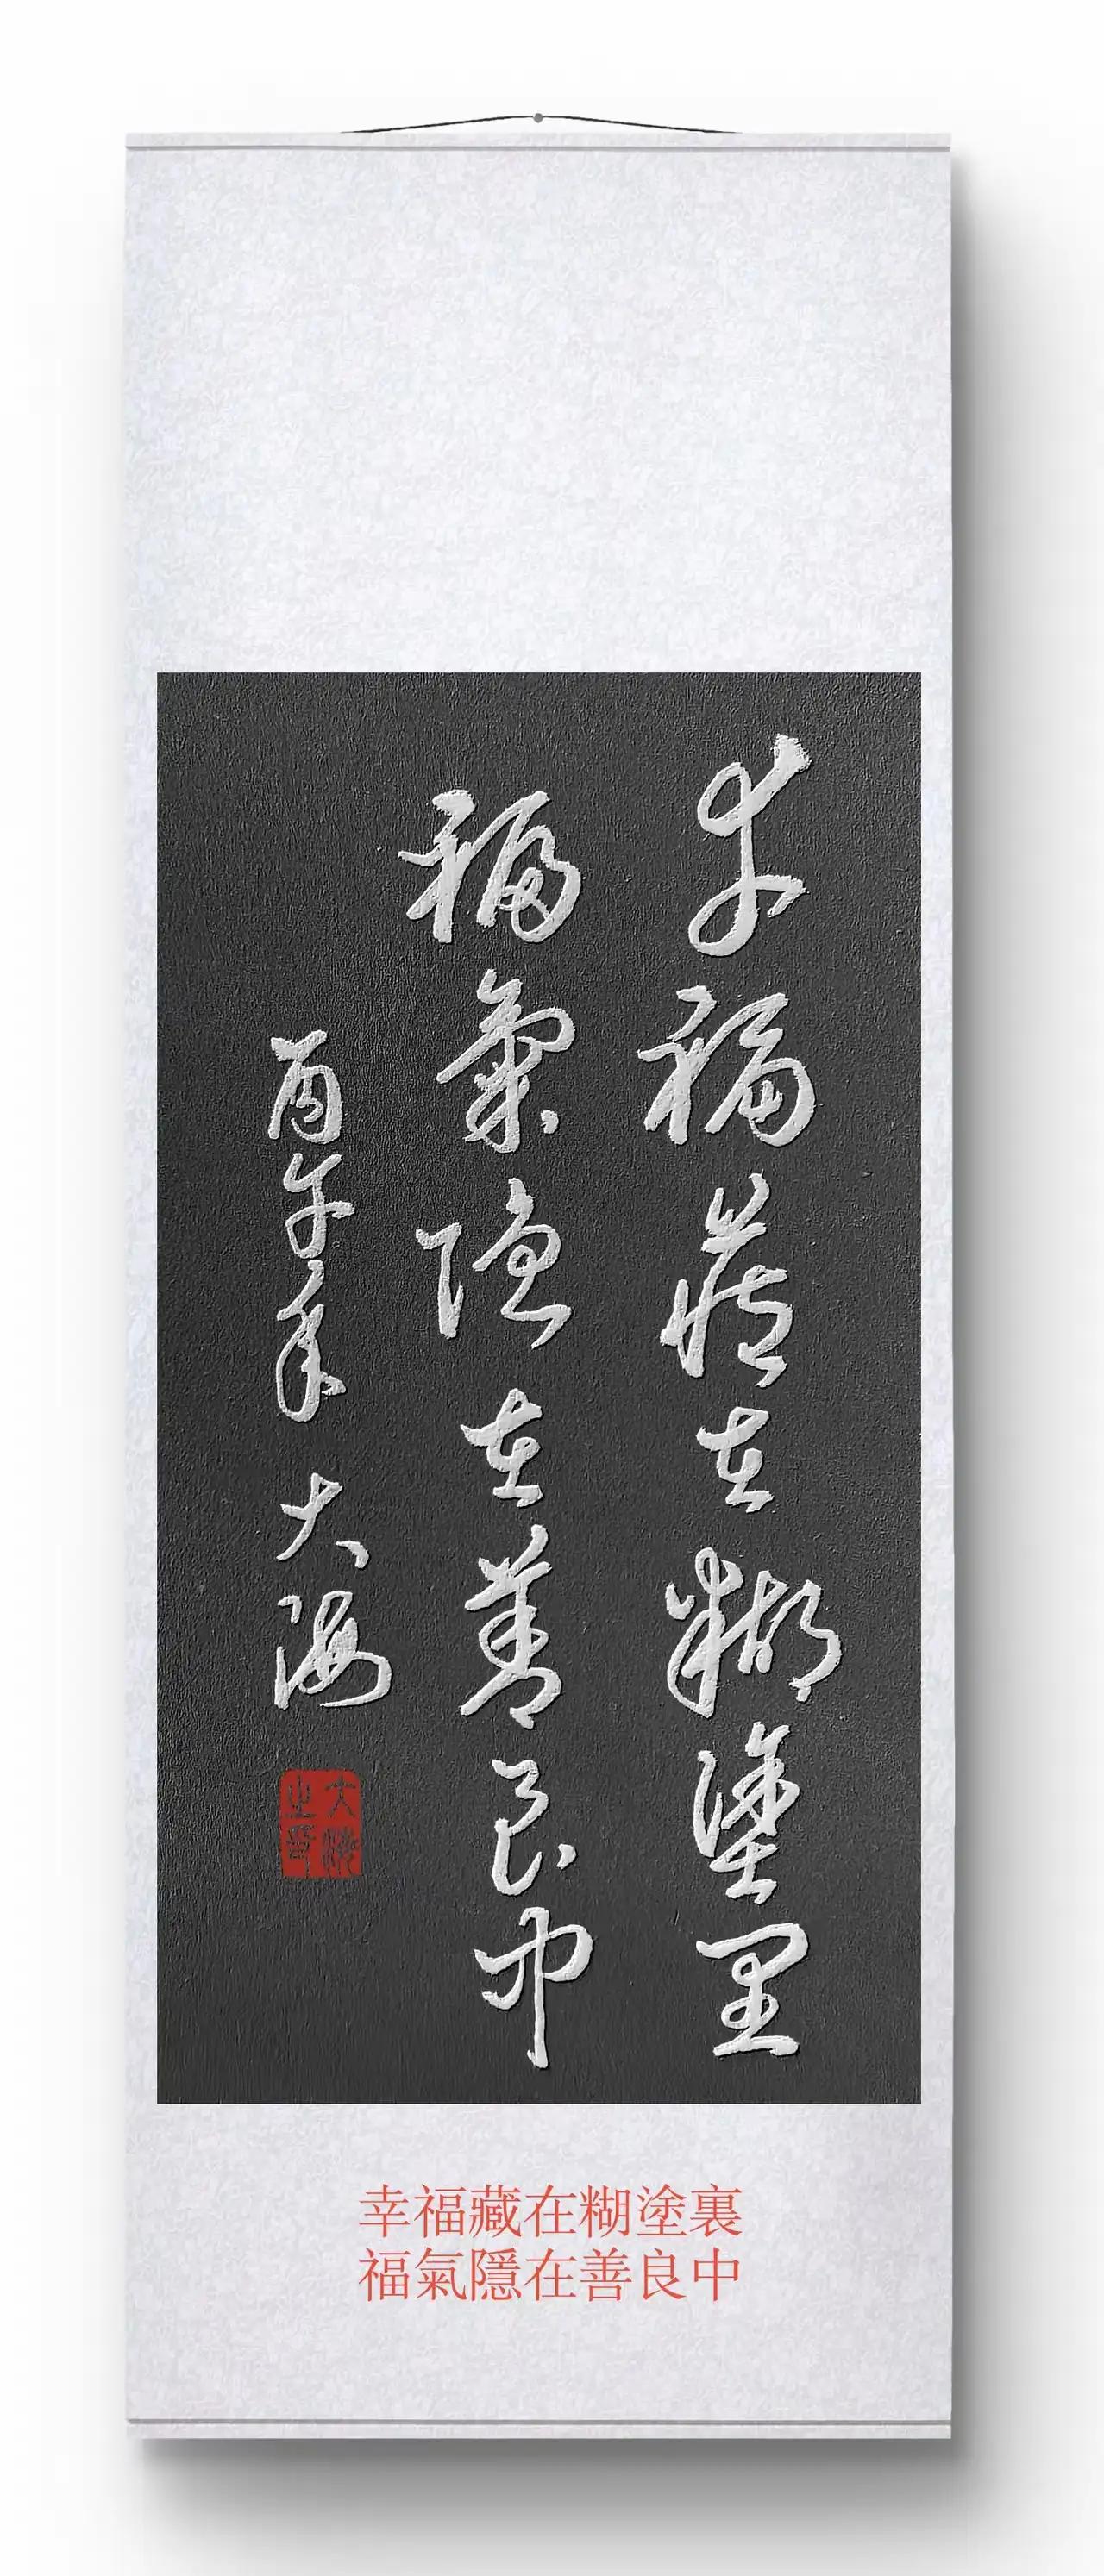 幸福藏在糊塗里
福氣隱在善良中
丙午年 大海
大海
之印
幸福藏在糊塗裏
福氣隱在善良中